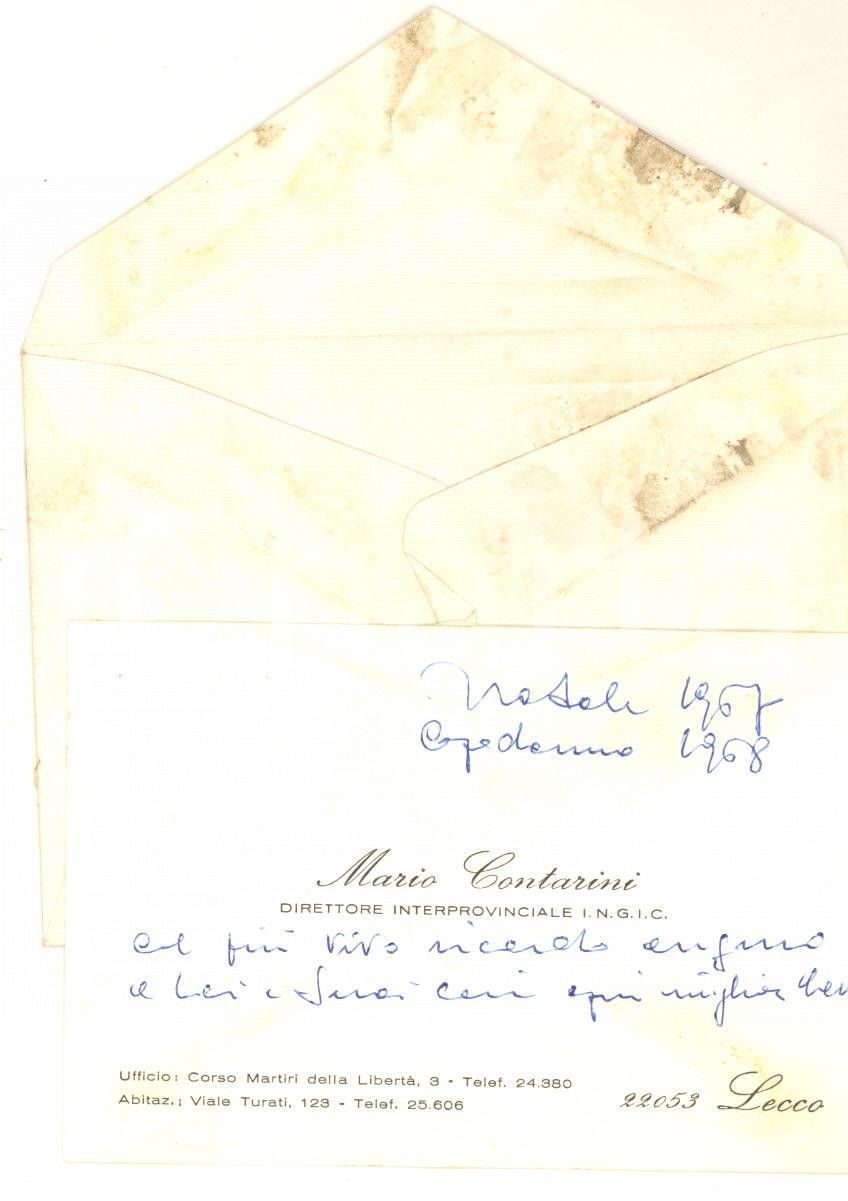 Natale 1967
Capodanno 1968
Mario Contarini
DIRETTORE INTERPROVINCIALE I.N.G.I.C.
col più vivo ricordo auguro
a Lei e Suoi cari ogni miglior ben
Ufficio: Corso Martiri della Libertà, 3 - Telef. 24.380
Abitaz.; Viale Turati, 123 - Telef. 25.606
22053 Lecco